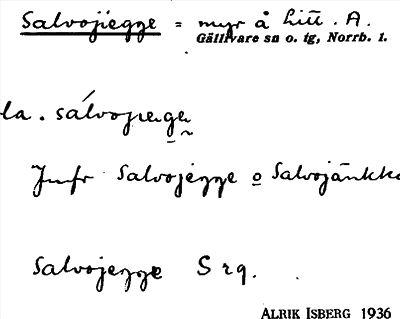 Salvojiegge = myr å litt. A.
Gällivare sn o. tg, Norrb. l.
la. sálvojıege
Jmfr Salvojegge o Salvojänkkä
Salvojegge S rg.
ALRIK ISBERG 1936